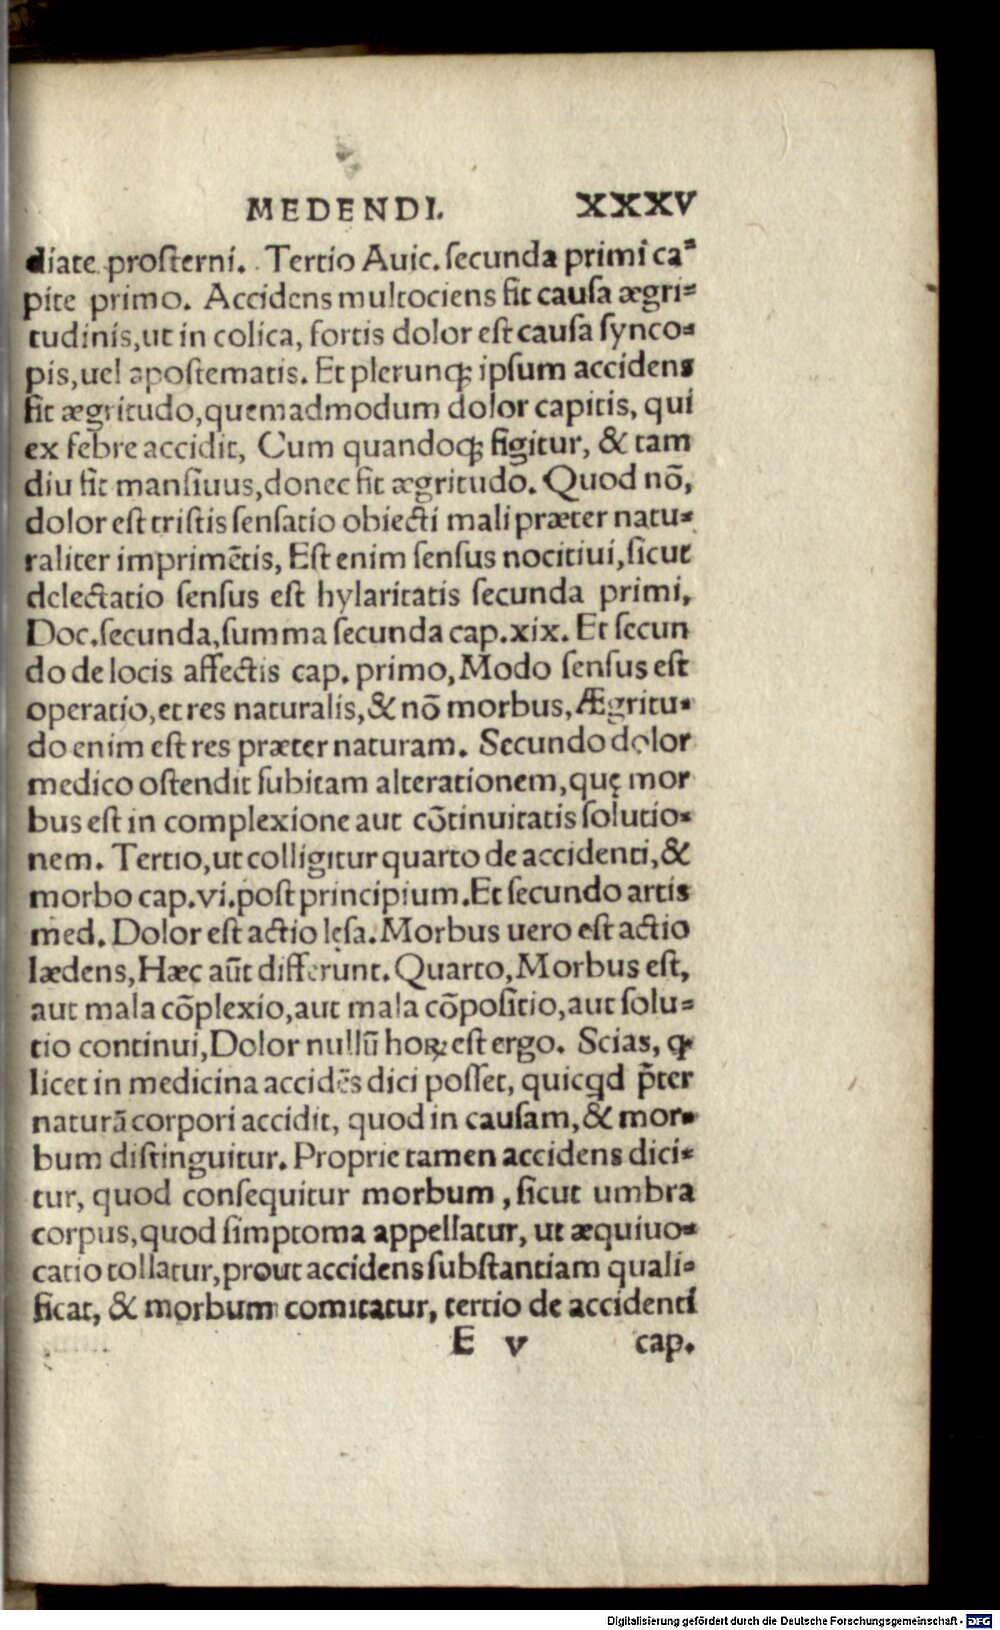 MEDENDI. XXXV
diate prosterni. Tertio Auic. secunda primi ca⸗
pite primo. Accidens multociens fit causa ægri⸗
tudinis,ut in colica, fortis dolor est causa synco⸗
pis,uel apostematis. Et plerunqꝫ ipsum accidens
fit ægritudo,quemadmodum dolor capitis, qui
ex febre accidit, Cum quandoqꝫ figitur, & tam
diu fit mansiuus,donec fit ægritudo. Quod nō,
dolor est tristis sensatio obiecti mali præter natu⸗
raliter imprimētis, Est enim sensus nocitiui,sicut
delectatio sensus est hylaritatis secunda primi,
Doc.secunda,summa secunda cap.xix. Et secun
do de locis affectis cap. primo,Modo sensus est
operatio,et res naturalis,& nō morbus,Ægritu⸗
do enim est res præter naturam. Secundo dolor
medico ostendit subitam alterationem,quę mor
bus est in complexione aut cōtinuitatis solutio⸗
nem. Tertio,ut colligitur quarto de accidenti,&
morbo cap.vi.post principium.Et secundo artis
med. Dolor est actio lęsa.Morbus uero est actio
lædens,Hæc aūt differunt.Quarto,Morbus est,
aut mala cōplexio,aut mala cōpositio,aut solu⸗
tio continui,Dolor nullū hoꝝ est ergo. Scias, ꝙ
licet in medicina accidēs dici posset, quicꝗd p̄ter
naturā corpori accidit, quod in causam,& mor⸗
bum distinguitur.Proprie tamen accidens dici⸗
tur, quod consequitur morbum, sicut umbra
corpus,quod simptoma appellatur, ut æquiuo⸗
catio tollatur,prout accidens substantiam quali⸗
ficat, & morbum comitatur, tertio de accidenti
E v cap.
Digitalisierung gefördert durch die Deutsche Forschungsgemeinschaft - DFG